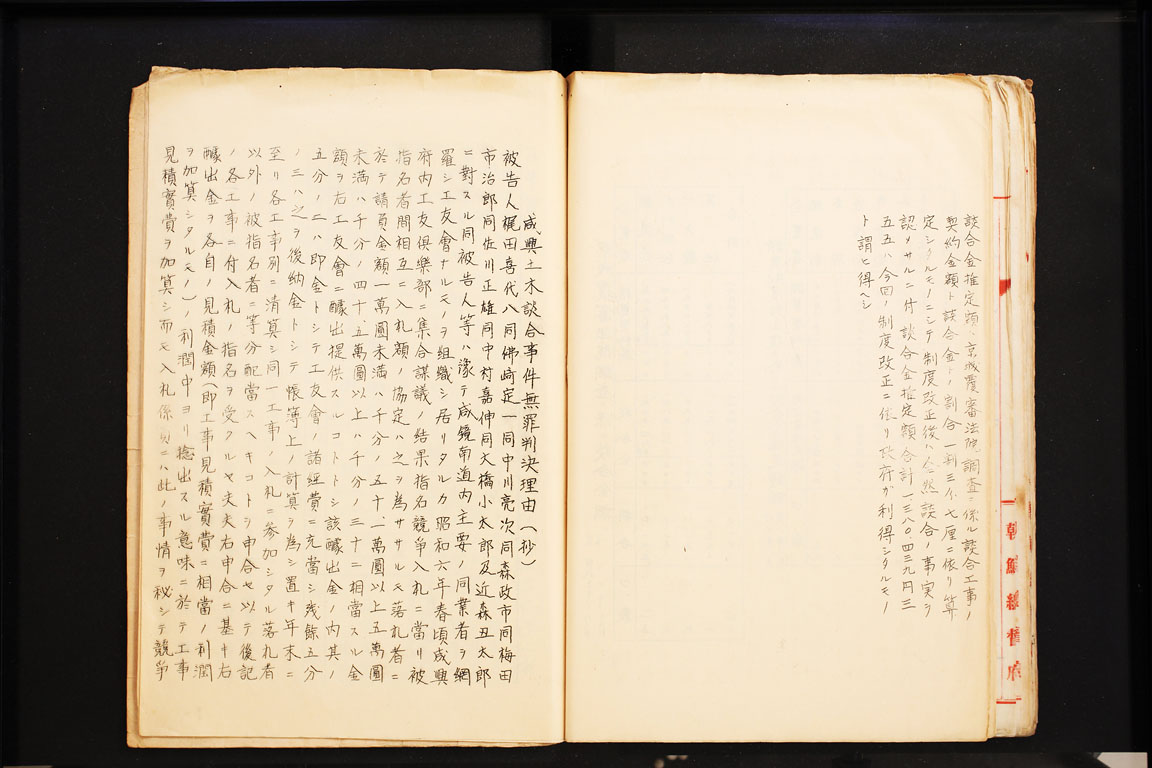 談合金推定額ハ京城覆審法院調査ニ係ル談合工事ノ
契約金額ト談合金トノ割合一割三分七厘ニ依リ算
定シタルモノニシテ制度改正後ハ全然談合ノ事実ヲ
認メサルニ付談合金推定額合計一三八〇、四三九円三
五五ハ今回ノ制度改正ニ依リ政府ガ利得シタルモノ
ト謂ヒ得ヘシ
朝鮮總督府
咸興土木談合事件無罪判決理由(抄)
被告人梶田喜代八同佛崎定一同中川亮次同森政市同梅田
市治郎同佐川正雄同中村嘉伸同大橋小太郎及近森丑太郎
ニ對スル同被告人等ハ豫テ咸鏡南道内主要ノ同業者ヲ網
羅シ工友會ナルモノヲ組織シ居リタルカ昭和六年春頃咸興
府内工友倶樂部ニ集合謀議ノ結果指名競爭入札ニ當リ被
指名者間相互ニ入札額ノ協定ハ之ヲ為サヽルモ落札者ニ
於テ請負金額一萬圓未満ハ千分ノ五十、一萬圓以上五萬圓
未満ハ千分ノ四十五萬圓以上ハ千分ノ三十ニ相當スル金
額ヲ右工友會ニ醵出提供スルコトトシ該醵出金ノ内其ノ
五分ノ二ハ即金トシテ工友會ノ諸經費ニ充當シ残餘五分
ノ三ハ之ヲ後納金トシテ帳簿上ノ計算ヲ為シ置キ年末ニ
至リ各工事別ニ清算シ同一工事ノ入札ニ參加シタル落札者
以外ノ被指名者ニ等分配當スヘキコトヲ申合セ以テ後記
ノ各工事ニ付入札ノ指名ヲ受クルヤ夫夫右申合ニ基キ右
醵出金ヲ各自ノ見積金額(即工事見積實費ニ相當ノ利潤
ヲ加算シタルモノ)ノ利潤中ヨリ捻出スル意味ニ於テ工事
見積實費ヲ加算シ而モ入札係員ニハ此ノ事情ヲ秘シテ競爭